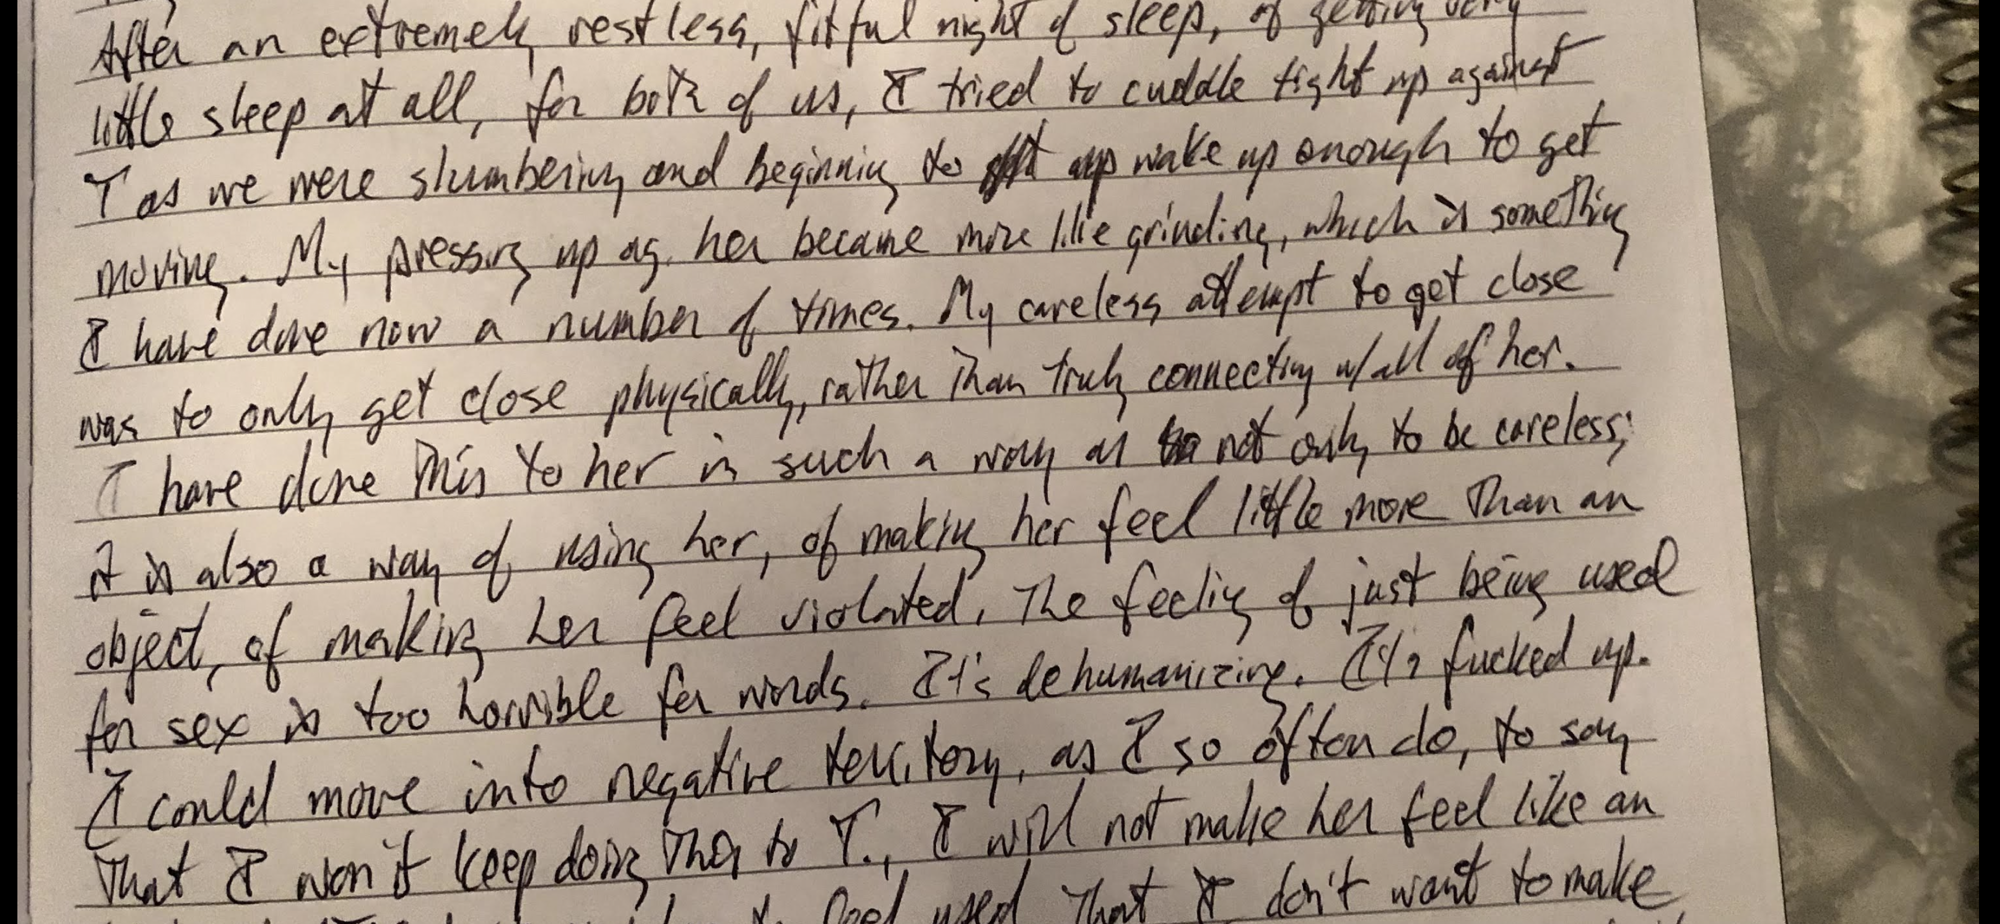 After an extremely restless, fitful night of sleep, of getting very
little sleep at all, for both of us, I tried to cuddle tight up against
T as we were slumbering and beginning to wake up enough to get
moving. My pressing up ag. her became more like grinding, which is something
I have done now a number of times. My careless attempt to get close
was to only get close physically, rather than truly connecting w/ all of her.
I have done this to her in such a way as not only to be careless;
it is also a way of using her, of making her feel little more than an
object, of making her feel violated. The feeling of just being used
for sex is too horrible for words. It's dehumanizing. It's fucked up.
I could move into negative territory, as I so often do, to say
that I won't keep doing this to T., I will not make her feel like an
feel used that I don't want to make